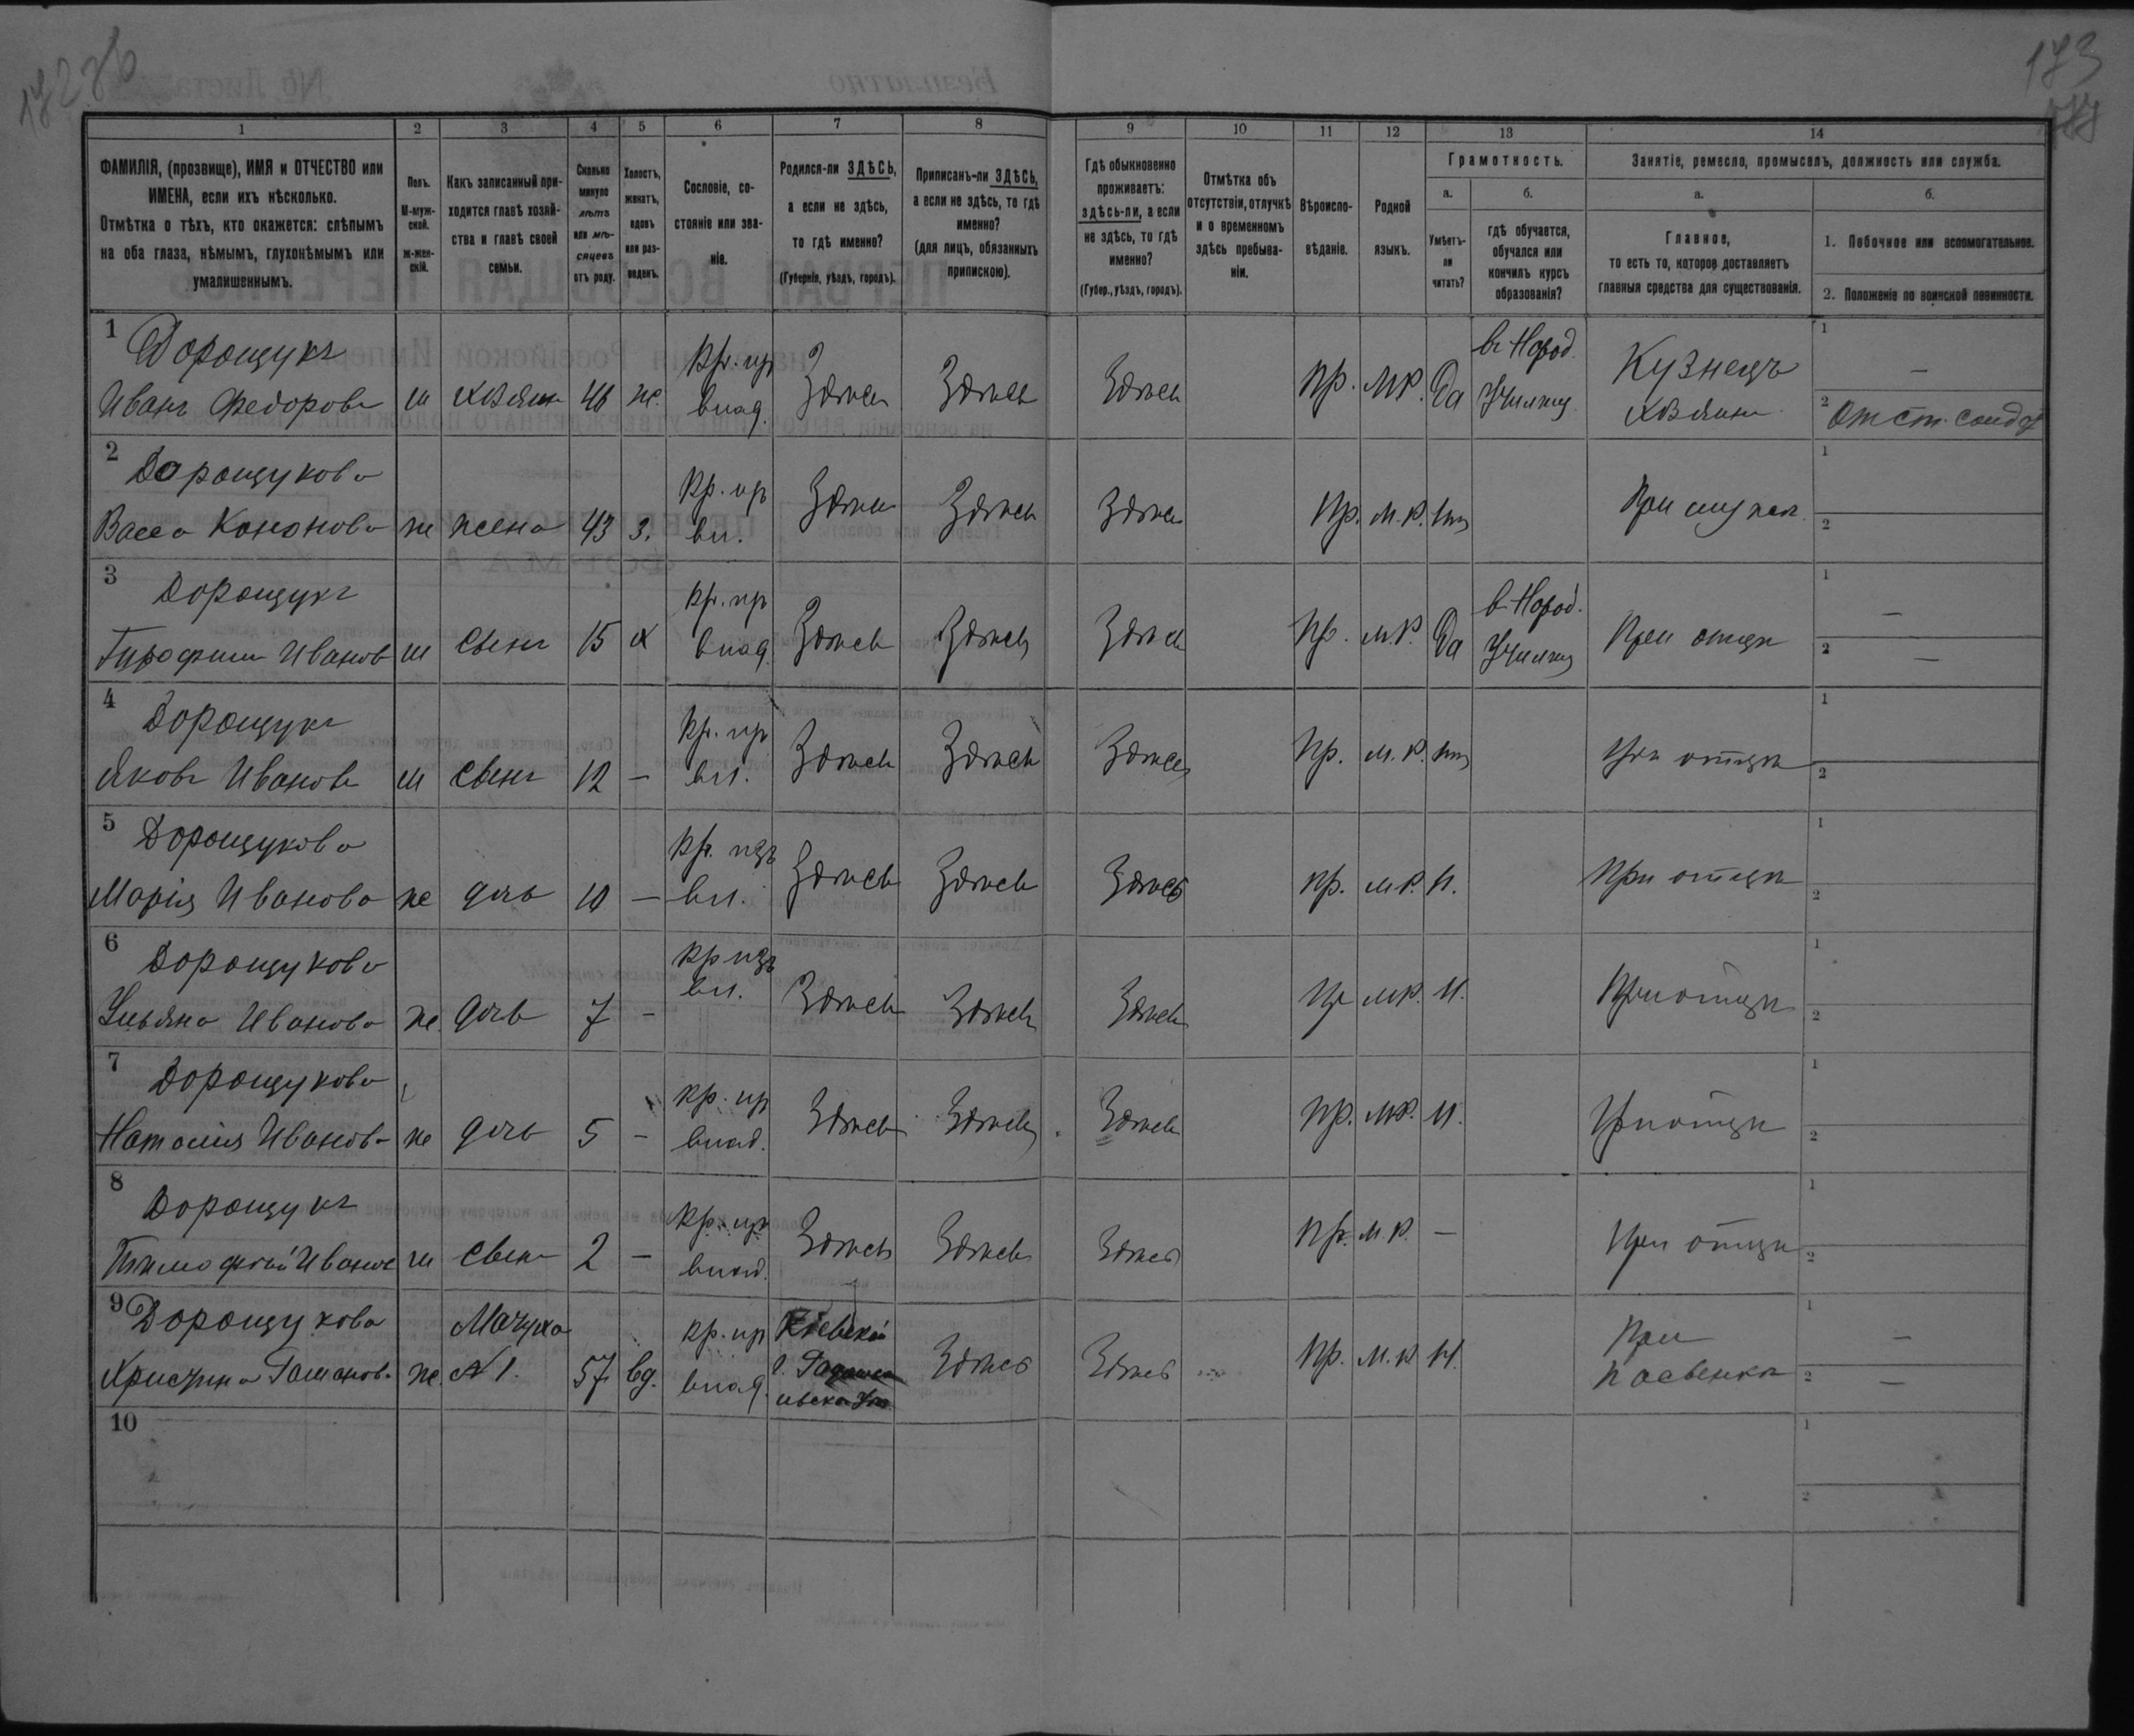 172об
173
1 2 3 4 5 6 7 8 9 10 11 12 13 14
ФАМИЛІЯ, (прозвище), ИМЯ и ОТЧЕСТВО или
ИМЕНА, если ихъ нѣсколько.
Отмѣтка о тѣхъ, кто окажется: слѣпымъ
на оба глаза, нѣмымъ, глухонѣмымъ или
умалишеннымъ.
Полъ.
М-муж-
ской.
Ж-жен-
скій.
Какъ записанный при-
ходится главѣ хозяй-
ства и главѣ своей
семьи.
Сколько
минуло
лѣтъ
или мѣ-
сяцевъ
отъ роду.
Холостъ,
женатъ,
вдовъ
или раз-
веденъ.
Сословіе, со-
стояніе или зва-
ніе.
Родился-ли ЗДѢСЬ,
а если не здѣсь,
то гдѣ именно?
(Губернія, уѣздъ, городъ).
Приписанъ-ли ЗДѢСЬ,
а если не здѣсь, то гдѣ
именно?
(для лицъ, обязанныхъ
припискою).
Гдѣ обыкновенно
проживаетъ:
здѣсь-ли, а если
не здѣсь, то гдѣ
именно?
(Губер., уѣздъ, городъ).
Отмѣтка объ
отсутствіи, отлучкѣ
и о временномъ
здѣсь пребыва-
ніи.
Вѣроиспо-
вѣданіе.
Родной
языкъ.
Грамотность.
а.
Умѣетъ-
ли
читать?
б.
гдѣ обучается,
обучался или
кончилъ курсъ
образованія?
Занятіе, ремесло, промыселъ, должность или служба.
а.
Главное,
то есть то, которое доставляетъ
главныя средства для существованія.
б.
1. Побочное или вспомогательное.
2. Положеніе по воинской повинности.
1 Дорощукъ Кр. из в Народ. Кузнецъ 1 —
Иванъ Федоровъ м хозяин 46 ж. влад. Здѣсь Здѣсь Здѣсь Пр. М.Р. Да Училищ хозяинъ 2 Отст. солдат
2 Дорощукова Кр. из 1
Васса Кононова ж жена 43 з. вл. Здѣсь Здѣсь Здѣсь Пр. М.Р. При мужѣ 2
3 Дорощукъ Кр. из в Народ. 1 —
Иванов м Сынъ 15 х влад. Здѣсь Здѣсь Здѣсь Пр. М.Р. Да Училищ При отцѣ 2 —
4 Дорощукъ Кр. из 1
Яковъ Ивановъ м Сынъ 12 — вл. Здѣсь Здѣсь Здѣсь Пр. М.Р. При отцѣ 2
5 Дорощукова Кр. изъ 1
Марія Иванова ж дочь 10 — вл. Здѣсь Здѣсь Здѣсь Пр. М.Р. Н. При отцѣ 2
6 Дорощукова Кр изъ 1
Ульяна Иванова ж. дочь 7 — вл. Здѣсь Здѣсь Здѣсь Пр М.Р. Н. При отцѣ 2
7 Дорощукова Кр. из 1
Наталия Иванова ж дочь 5 — влад. Здѣсь Здѣсь Здѣсь Пр. М.Р. Н. При отцѣ 2
8 Дорощукъ Кр. из 1
Тимофѣй Иванов м Сынъ 2 — влад. Здѣсь Здѣсь Здѣсь Пр. М.Р. — При отцѣ 2
9 Дорощукова Мачуха Кр. из Кіевской При 1 —
Христина ж. №1. 57 вд. влад. г. Здѣсь Здѣсь Пр. М.Р. Н. пасынкѣ 2 —
10 1
2